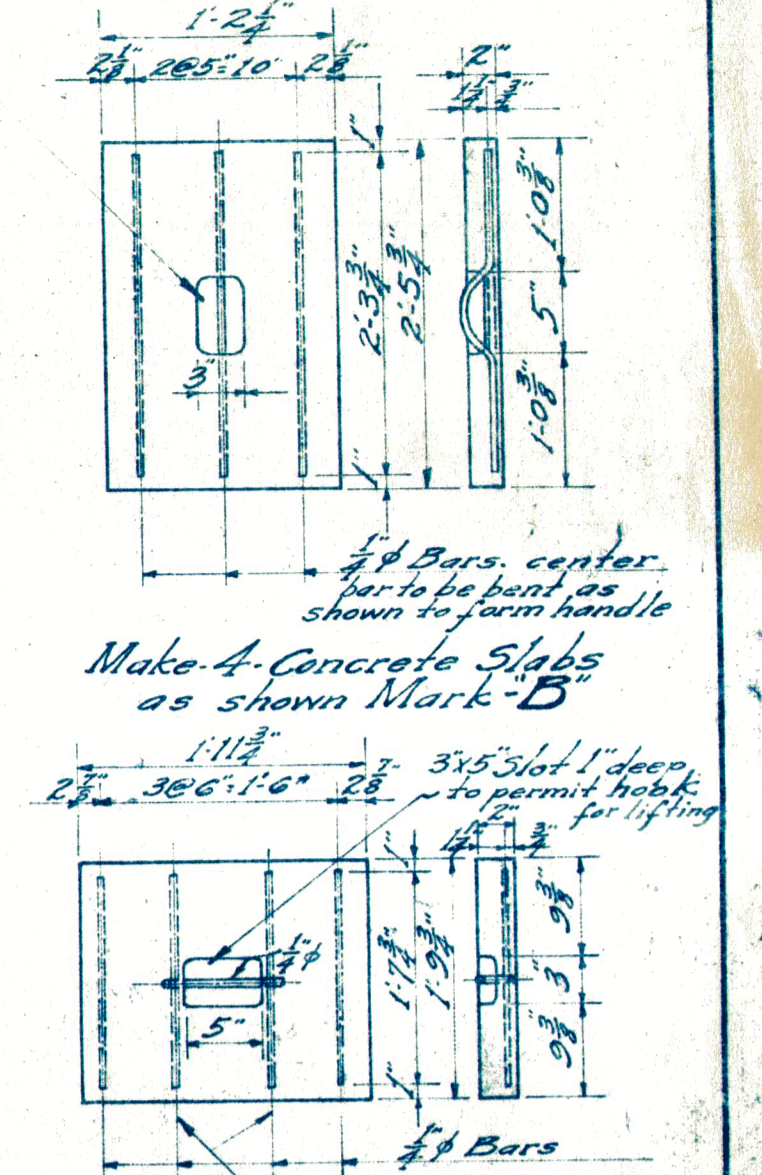 1'-2 1/4"
2 1/8" 2@5"=10" 2 1/8"
2"
1 1/4" 3/4"
1"
1'-0 3/8"
2'-3 3/4"
2'-5 3/4"
5"
3"
1'-0 3/8"
1"
1/4" ϕ Bars. center
bar to be bent as
shown to form handle
Make-4-Concrete Slabs
as shown Mark-"B"
1'-11 3/4"
2 7/8" 3@6"=1'-6" 2 7/8"
3"x5" Slot 1" deep
to permit hook
for lifting
2"
1 1/4" 3/4"
1"
9 3/8"
1/4" ϕ
1'-7 3/4"
1'-9 3/4"
3"
5"
9 3/8"
1"
1/4" ϕ Bars